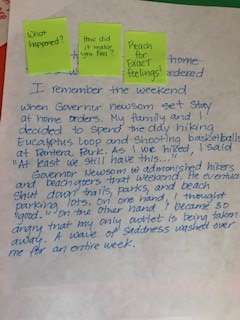 What
happened?
How did
it make
you feel?
Reach
for
EXACT
feelings!
home
ordered
I remember the weekend
when Governor Newsom set stay
at home orders. My family and I
decided to spend the day hiking
Eucalyptus Loop and shooting basketballs
at Pantera Park. As I we hiked, I said
"At least we still have this..."
Governor Newsom w admonished hikers
and beachgoers that weekend. He eventually
shut down trails, parks, and beach
parking lots. On one hand, I thought
"good." On the other hand I became so
angry that my only outlet is being taken
away. A wave of saddness washed over
me for an entire week.